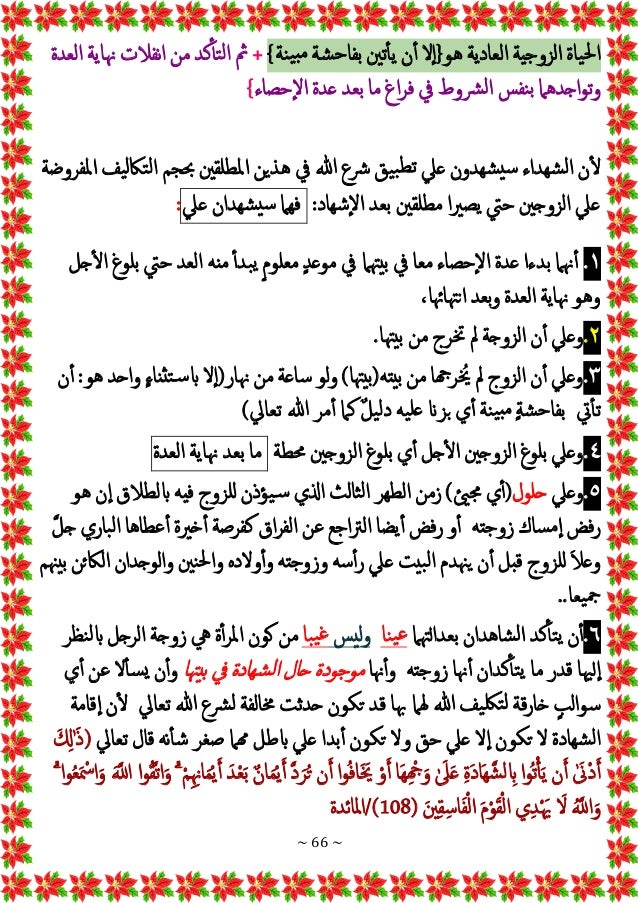 الحياة الزوجية العادية هو{إلا أن يأتين بفاحشة مبينة} + ثم التأكد من انفلات نهاية العدة
وتواجدهما بنفس الشروط في فراغ ما بعد عدة الإحصاء}
لأن الشهداء سيشهدون علي تطبيق شرع الله في هذين المطلقين بحجم التكاليف المفروضة
علي الزوجين حتي يصيرا مطلقين بعد الإشهاد: فهما سيشهدان علي:
١. أنهما بدءا عدة الإحصاء معا في بيتهما في موعدٍ معلومٍ يبدأ منه العد حتي بلوغ الأجل
وهو نهاية العدة وبعد انتهائها،
٢.وعلي أن الزوجة لم تخرج من بيتها.
٣.وعلي أن الزوج لم يُخرجها من بيته(بيتها) ولو ساعة من نهار(إلا باستثناءٍ واحد هو: أن
تأتي بفاحشةٍ مبينة أي بزنا عليه دليلٌ كما أمر الله تعالي)
٤.وعلي بلوغ الزوجين الأجل أي بلوغ الزوجين محطة ما بعد نهاية العدة
٥.وعلي حلول(أي مجيئ) زمن الطهر الثالث الذي سيؤذن للزوج فيه بالطلاق إن هو
رفض إمساك زوجته أو رفض أيضا التراجع عن الفراق كفرصة أخيرة أعطاها الباري جلّ
وعلاَ للزوج قبل أن ينهدم البيت علي رأسه وزوجته وأولاده والحنين والوجدان الكائن بينهم
جميعا..
٦.أن يتأكد الشاهدان بعدالتهما عينا وليس غيبا من كون المرأة هي زوجة الرجل بالنظر
إليها قدر ما يتأكدان أنها زوجته وأنها موجودة حال الشهادة في بيتها وأن يسألا عن أي
سوالبٍ خارقة لتكليف الله لهما بها قد تكون حدثت مخالفة لشرع الله تعالي لأن إقامة
الشهادة لا تكون إلا علي حق ولا تكون أبدا علي باطل مهما صغر شأنه قال تعالي (ذَلِكَ
أَدْنَى أَنْ يَأْتُوا بِالشَّهَادَةِ عَلَى وَجْهِهَا أَوْ يَخَافُوا أَنْ تُرَدَّ أَيْمَانٌ بَعْدَ أَيْمَانِهِمْ ۗ وَاتَّقُوا اللَّهَ وَاسْمَعُوا ۗ
وَاللَّهُ لَا يَهْدِي الْقَوْمَ الْفَاسِقِينَ (108)/المائدة
~ 66 ~